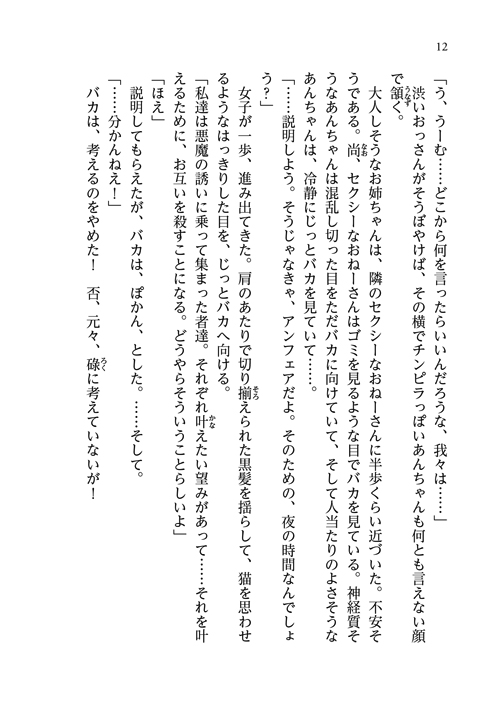 12
「う、うーむ……どこから何を言ったらいいんだろうな、我々は……」
　渋いおっさんがそうぼやけば、その横でチンピラっぽいあんちゃんも何とも言えない顔
で頷く。
　大人しそうなお姉ちゃんは、隣のセクシーなおねーさんに半歩くらい近づいた。不安そ
うである。尚、セクシーなおねーさんはゴミを見るような目でバカを見ている。神経質そ
うなあんちゃんは混乱し切った目をただバカに向けていて、そして人当たりのよさそうな
あんちゃんは、冷静にじっとバカを見ていて……。
「……説明しよう。そうじゃなきゃ、アンフェアだよ。そのための、夜の時間なんでしょ
う？」
　女子が一歩、進み出てきた。肩のあたりで切り揃えられた黒髪を揺らして、猫を思わせ
るようなはっきりした目を、じっとバカへ向ける。
「私達は悪魔の誘いに乗って集まった者達。それぞれ叶えたい望みがあって……それを叶
えるために、お互いを殺すことになる。どうやらそういうことらしいよ」
「ほえ」
　説明してもらえたが、バカは、ぽかん、とした。……そして。
「……分かんねえ！」
　バカは、考えるのをやめた！　否、元々、碌に考えていないが！